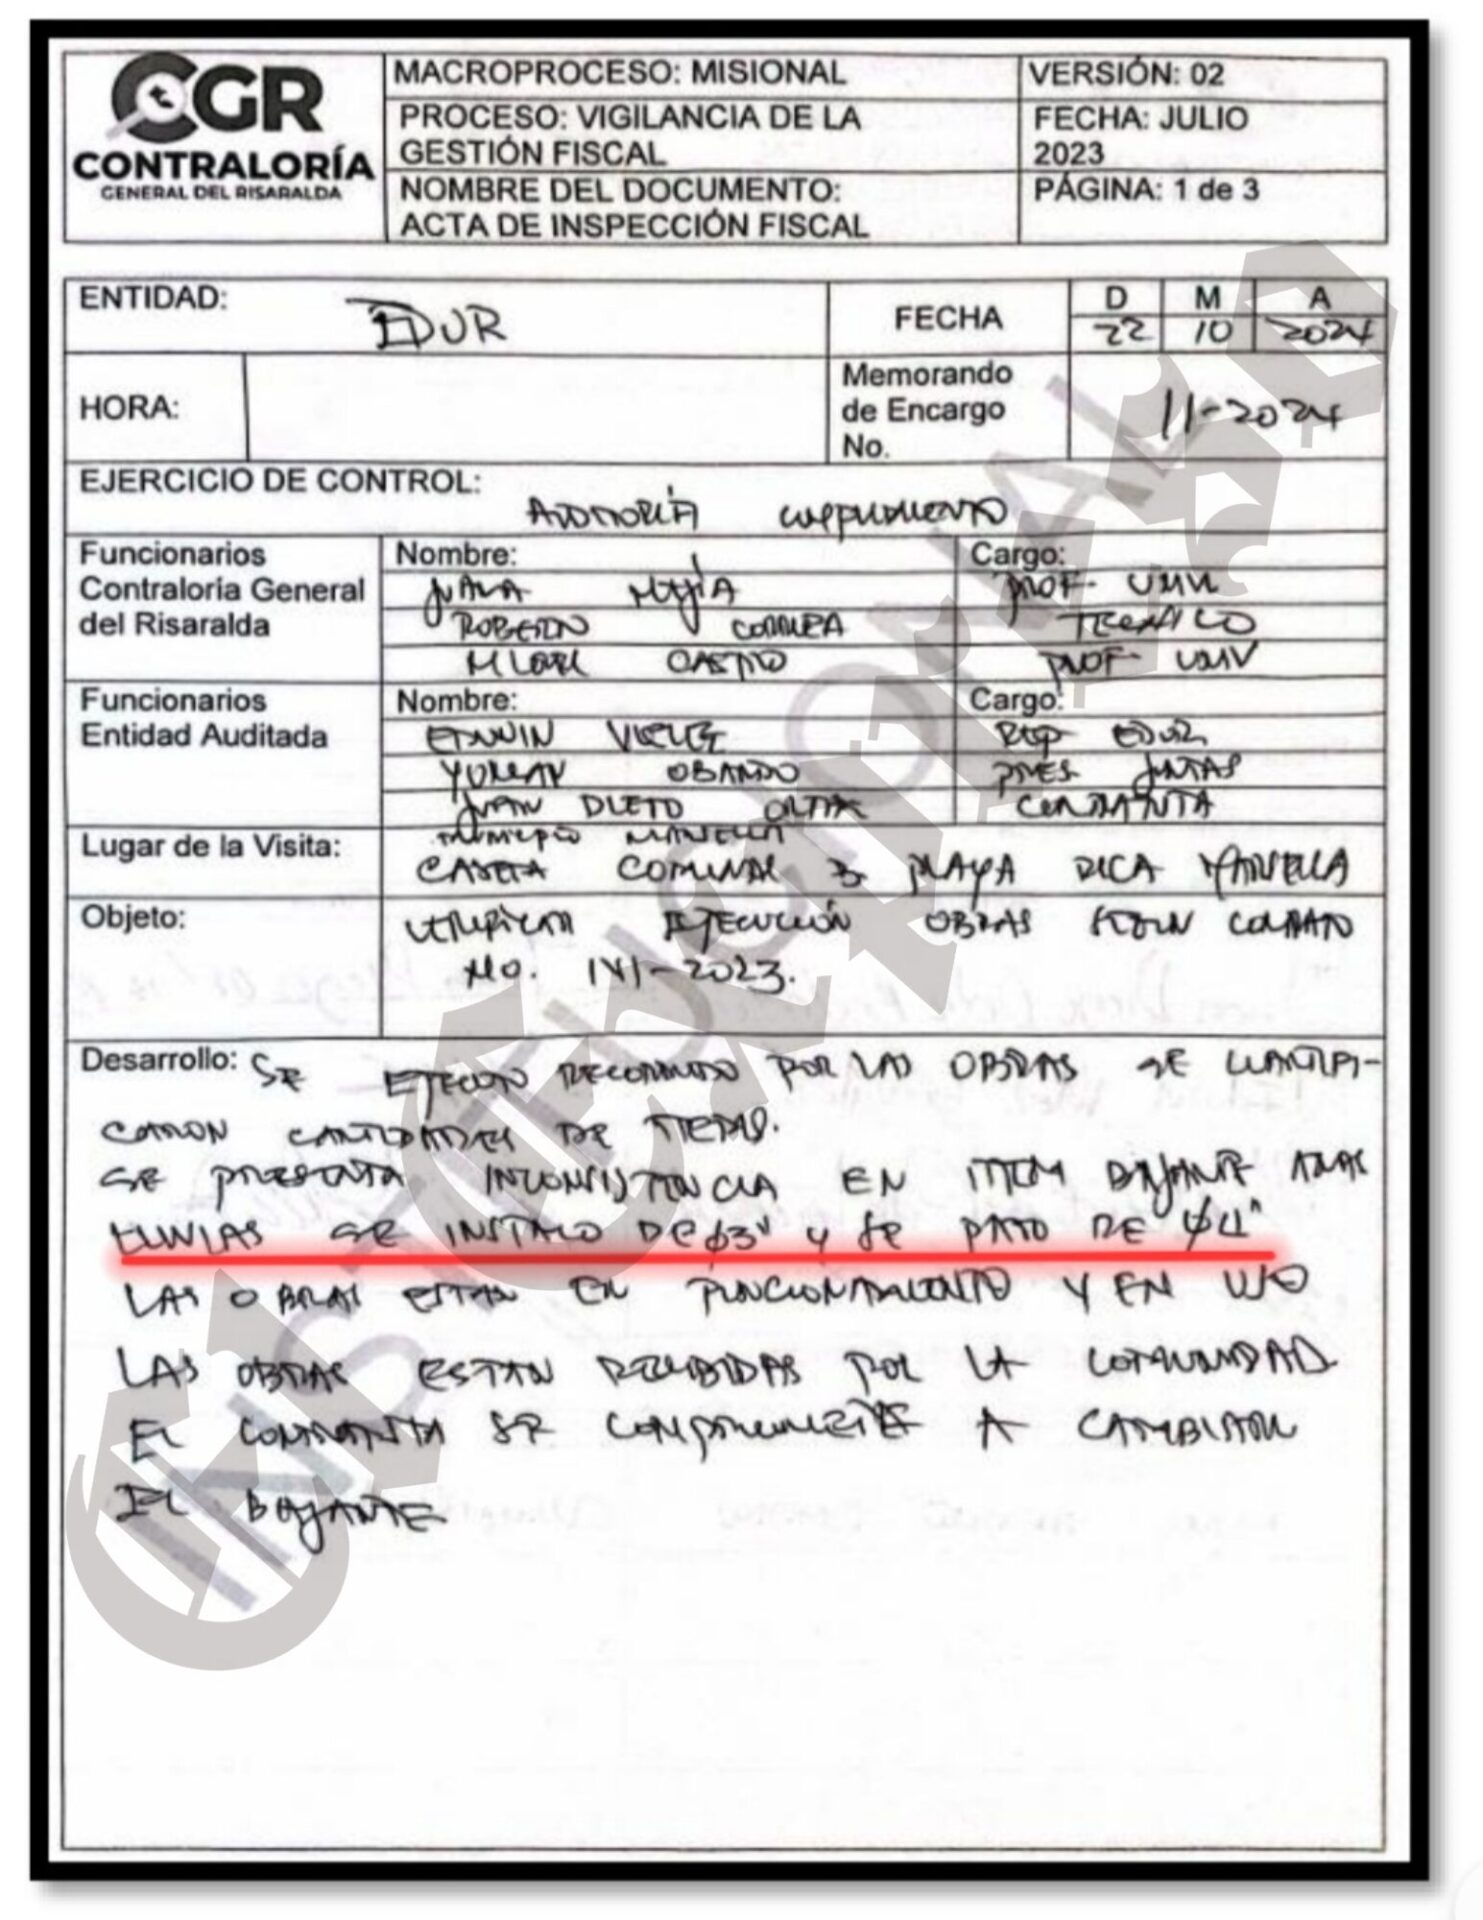 CGR
CONTRALORÍA
GENERAL DEL RISARALDA
MACROPROCESO: MISIONAL
VERSIÓN: 02
PROCESO: VIGILANCIA DE LA
GESTIÓN FISCAL
FECHA: JULIO
2023
NOMBRE DEL DOCUMENTO:
ACTA DE INSPECCIÓN FISCAL
PÁGINA: 1 de 3
ENTIDAD:
EDUR
FECHA
D M A
22 10 2024
HORA:
Memorando
de Encargo
No.
11-2024
EJERCICIO DE CONTROL:
AUDITORÍA CUMPLIMIENTO
Funcionarios
Contraloría General
del Risaralda
Nombre:
Cargo:
MEJÍA PROF- UNIV
ROBERTO CORREA TECNICO
CASTRO PROF- UNIV
Funcionarios
Entidad Auditada
Nombre:
Cargo:
EDWIN REP EDUR
OBANDO PRES. JUNTAS
JUAN CONTRATISTA
Lugar de la Visita:
MUNICIPIO MARSELLA
CASETA COMUNAL PLAYA RICA MARSELLA
Objeto:
VERIFICAR EJECUCIÓN OBRAS SEGUN CONTRATO
No. -2023.
Desarrollo:
SE EJECUTO RECORRIDO POR LAS OBRAS SE CUANTIFI-
CARON CANTIDADES DE ITEMS.
SE PRESENTA INCONSISTENCIA EN ITEM BAJANTE AGUAS
LLUVIAS SE INSTALO DE ø3" Y SE PAGO DE ø4"
LAS OBRAS ESTAN EN FUNCIONAMIENTO Y EN USO
LAS OBRAS ESTAN RECIBIDAS POR LA COMUNIDAD
EL CONTRATISTA SE COMPROMETE A CAMBIAR
EL BAJANTE